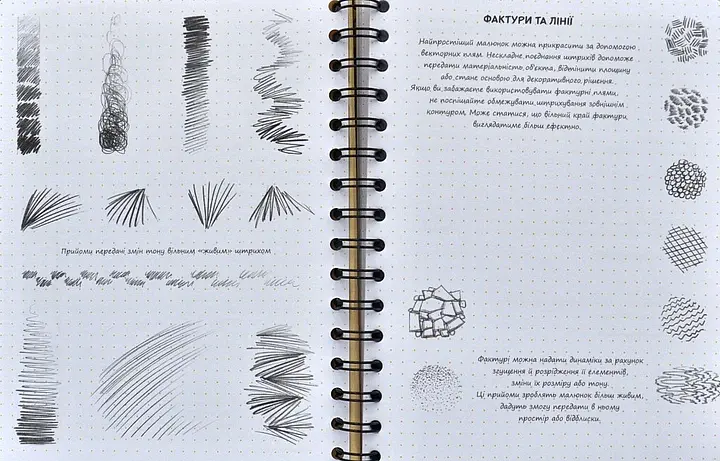 Прийоми передачі змін тону вільним «живим» штрихом
ФАКТУРИ ТА ЛІНІЇ
Найпростіший малюнок можна прикрасити за допомогою
векторних плям. Нескладне поєднання штрихів допоможе
передати матеріальність об'єкта, відтінити площину
або стане основою для декоративного рішення.
Якщо ви забажаєте використовувати фактурні плями,
не поспішайте обмежувати штрихування зовнішнім
контуром. Може статися, що вільний край фактури
виглядатиме більш ефектно.
Фактурі можна надати динаміки за рахунок
згущення й розрідження її елементів,
зміни їх розміру або тону.
Ці прийоми зроблять малюнок більш живим,
дадуть змогу передати в ньому
простір або відблиски.